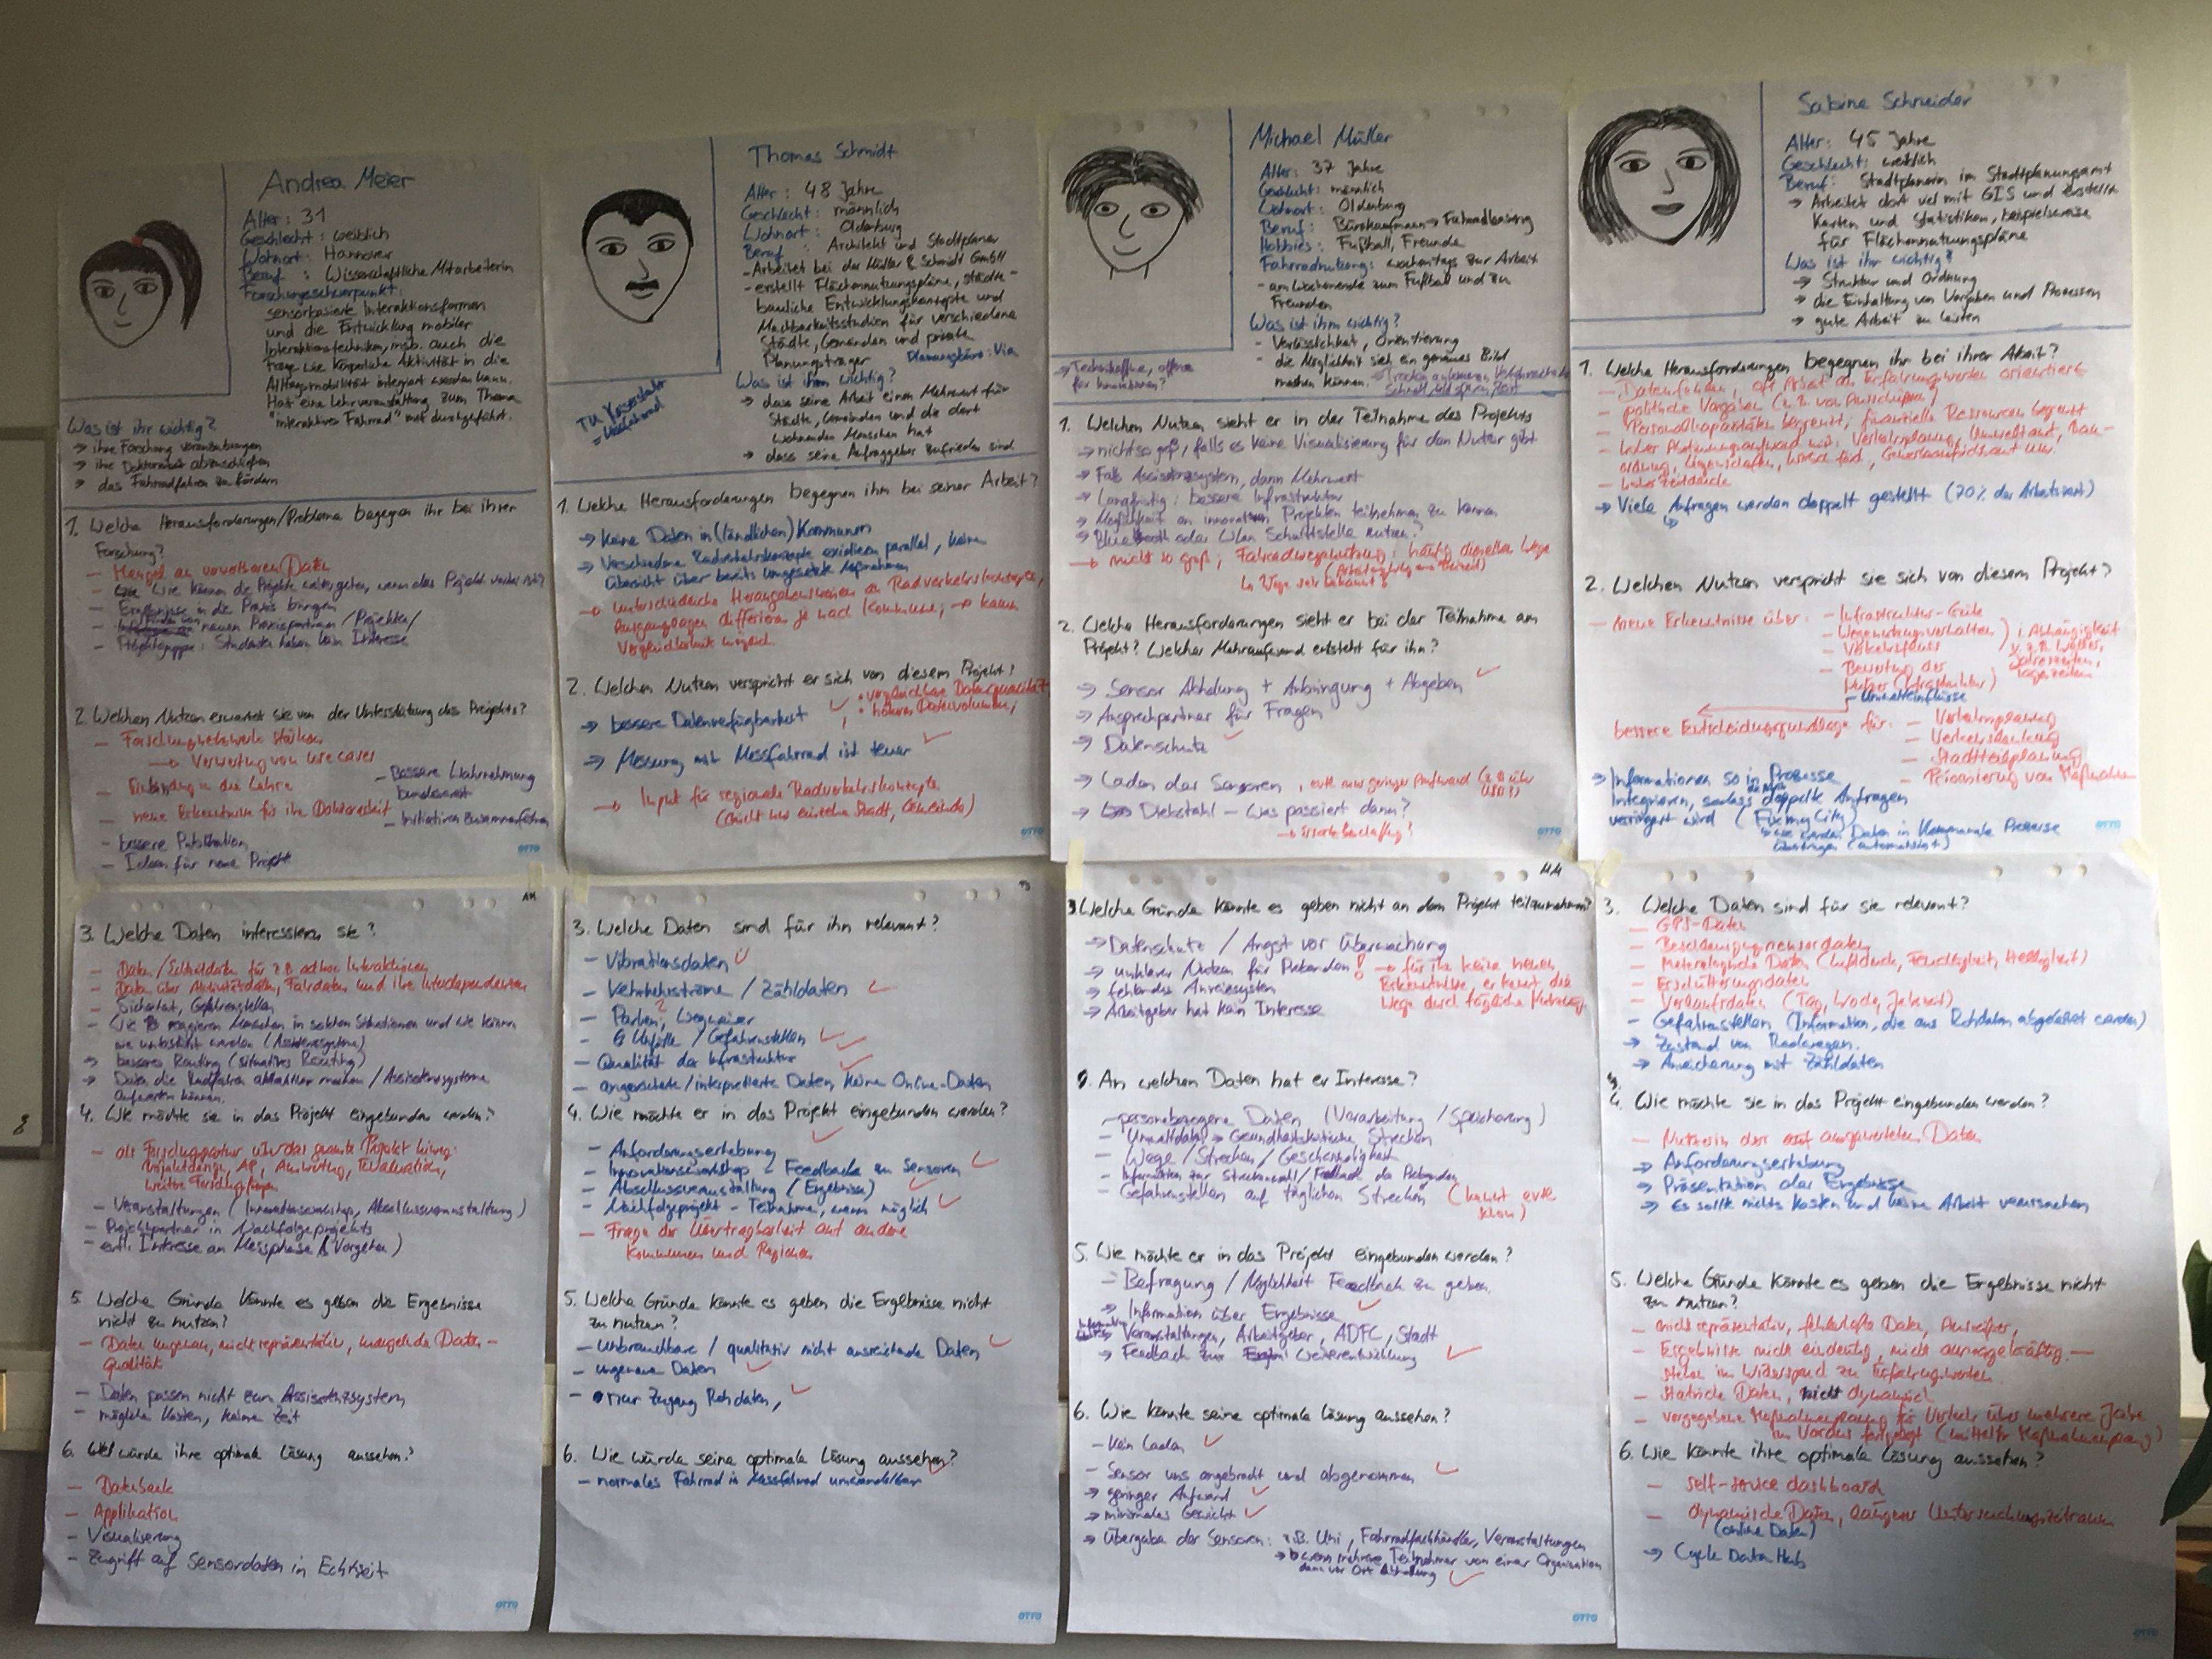 Andrea Meier
Alter: 31
Geschlecht: weiblich
Wohnort: Hannover
Beruf: Wissenschaftliche Mitarbeiterin
Forschungsschwerpunkt:
sensorbasierte Interaktionsformen
und die Entwicklung mobiler
Interaktionstechniken, insb. auch die
Frage wie körperliche Aktivität in die
Alltagsmobilität integriert werden kann.
Hat eine Lehrveranstaltung zum Thema
"interaktives Fahrrad" mit durchgeführt.
Was ist ihr wichtig?
→ ihre Forschung voranzubringen
→ ihre Doktorarbeit abzuschließen
→ das Fahrradfahren zu fördern
1. Welche Herausforderungen/Probleme begegnen ihr bei ihrer
Forschung?
- Mangel an verwertbaren Daten
- Wie können die Projekte weitergehen, wenn das Projekt vorbei ist?
- Ergebnisse in die Praxis bringen
- neuen Praxispartnern / Projekte /
- Projektgruppe: Studenten haben kein Interesse
2. Welchen Nutzen erwartet sie von der Unterstützung des Projekts?
- Forschungsnetzwerk stärken
→ Verwertung von use cases
- Einbindung in die Lehre
- neue Erkenntnisse für ihre Doktorarbeit
- bessere Publikation
- Ideen für neue Projekte
- Bessere Wahrnehmung
bundesweit
- Initiativen zusammenführen
OTTO
Thomas Schmidt
Alter: 48 Jahre
Geschlecht: männlich
Wohnort: Oldenburg
Beruf: Architekt und Stadtplaner
- Arbeitet bei der Müller & Schmidt GmbH
- erstellt Flächennutzungspläne, städte-
bauliche Entwicklungskonzepte und
Machbarkeitsstudien für verschiedene
Städte, Gemeinden und private
Planungsträger Planungsbüro: Via
Was ist ihm wichtig?
→ dass seine Arbeit einen Mehrwert für
Städte, Gemeinden und die dort
wohnenden Menschen hat
→ dass seine Auftraggeber zufrieden sind
TU Kaiserslautern
1. Welche Herausforderungen begegnen ihm bei seiner Arbeit?
→ keine Daten in (ländlichen) Kommunen
→ Verschiedene Radverkehrskonzepte existieren parallel, keine
Übersicht über bereits umgesetzte Maßnahmen
→ unterschiedliche Herangehensweisen an Radverkehrskonzepte,
Ausgangslagen differieren je nach Kommune; → kaum
Vergleichbarkeit möglich
2. Welchen Nutzen verspricht er sich von diesem Projekt?
→ bessere Datenverfügbarkeit
• vergleichbare Datenqualität
• höheres Datenvolumen;
→ Messung mit Messfahrrad ist teuer
→ Input für regionale Radverkehrskonzepte
(nicht nur einzelne Stadt, Gemeinde)
OTTO
Michael Müller
Alter: 37 Jahre
Geschlecht: männlich
Wohnort: Oldenburg
Beruf: Bürokaufmann → Fahrradleasing
Hobbies: Fußball, Freunde
Fahrradnutzung: wochentags zur Arbeit
- am Wochenende zum Fußball und zu
Freunden
Was ist ihm wichtig?
- Verlässlichkeit, Orientierung
- die Möglichkeit sich ein genaues Bild
machen können.
→ Technikaffine, offene
für Innovationen?
1. Welchen Nutzen sieht er in der Teilnahme des Projekts
→ nicht so groß, falls es keine Visualisierung für den Nutzer gibt
→ Falls Assistenzsystem, dann Mehrwert
→ Langfristig: bessere Infrastruktur
→ Möglichkeit an innovativen Projekten teilnehmen zu können
→ Bluetooth oder Wlan Schnittstelle nutzen?
→ nicht so groß; Fahrradwegnutzung: häufig dieselben Wege
↳ Wege sehr bekannt!
2. Welche Herausforderungen sieht er bei der Teilnahme am
Projekt? Welcher Mehraufwand entsteht für ihn?
→ Sensor Abholung + Anbringung + Abgeben
→ Ansprechpartner für Fragen
→ Datenschutz
→ Laden der Sensoren, evtl. nur geringer Aufwand (z.B. über
USB?)
→ Diebstahl – Was passiert dann?
→ Ersatzbeschaffung!
OTTO
Sabine Schneider
Alter: 45 Jahre
Geschlecht: weiblich
Beruf: Stadtplanerin im Stadtplanungsamt
→ Arbeitet dort viel mit GIS und erstellt
Karten und Statistiken, beispielsweise
für Flächennutzungspläne
Was ist ihr wichtig?
→ Struktur und Ordnung
→ die Einhaltung von Vorgaben und Prozessen
→ gute Arbeit zu leisten
1. Welche Herausforderungen begegnen ihr bei ihrer Arbeit?
- Daten fehlen, oft Arbeit an Erfahrungswerten orientiert
- politische Vorgaben (z.B. von Ausschüssen)
- Personalkapazitäten begrenzt, finanzielle Ressourcen begrenzt
- hoher Abstimmungsaufwand mit: Verkehrsplanung, Umweltamt, Bau-
ordnung,
- hoher Zeitdruck
→ Viele Anfragen werden doppelt gestellt (20% der Arbeitszeit)
2. Welchen Nutzen verspricht sie sich von diesem Projekt?
- neue Erkenntnisse über:
- Infrastruktur-Güte
- Wegenutzungsverhalten
- Verkehrsfluss
- Bewertung der
Nutzer (Infrastruktur)
- Umwelteinflüsse
i. Abhängigkeit
v. z.B. Wetter,
Jahreszeiten,
Tageszeiten
bessere Entscheidungsgrundlage für:
- Verkehrsplanung
- Verkehrslenkung
- Stadtteilplanung
- Priorisierung von Maßnahmen
→ Informationen so in Prozesse
integrieren, sodass doppelte Anfragen
verringert wird (FixmyCity)
↳ wie werden Daten in Kommunale Prozesse
übertragen (automatisiert)
OTTO
AM
3. Welche Daten interessieren sie?
- Daten / Echtzeitdaten für z.B. ad hoc Interaktionen
- Daten über Aktivitätsdaten, Fahrdaten und ihre Interdependenzen
- Sicherheit, Gefahrenstellen
- Wie reagieren Menschen in solchen Situationen und wie können
sie unterstützt werden (Assistenzsysteme)
→ besseres Routing (situatives Routing)
→ Daten die Radfahren attraktiver machen / Assistenzsysteme
aufwerten können.
4. Wie möchte sie in das Projekt eingebunden werden?
- als Forschungspartner über das gesamte Projekt hinweg:
Projektdesign, AP, Auswertung, Evaluation,
weitere Forschungsfragen
- Veranstaltungen (Innovationsworkshop, Abschlussveranstaltung)
- Projektpartner in Nachfolgeprojekts
- evtl. Interesse an Messphase (Vorgehen)
5. Welche Gründe könnte es geben die Ergebnisse
nicht zu nutzen?
- Daten ungenau, nicht repräsentativ, mangelnde Daten-
qualität
- Daten passen nicht zum Assistenzsystem
- mögliche Kosten, keine Zeit
6. Wie würde ihre optimale Lösung aussehen?
- Datenbank
- Applikation
- Visualisierung
- Zugriff auf Sensordaten in Echtzeit
OTTO
TS
3. Welche Daten sind für ihn relevant?
- Vibrationsdaten
- Verkehrsströme / Zähldaten
- Parken?, Wegweiser
- Unfälle / Gefahrenstellen
- Qualität der Infrastruktur
- angereicherte / interpretierte Daten, keine Online-Daten
4. Wie möchte er in das Projekt eingebunden werden?
- Anforderungserhebung
- Innovationsworkshop - Feedback an Sensoren
- Abschlussveranstaltung (Ergebnisse)
- Nachfolgeprojekt - Teilnahme, wenn möglich
- Frage der Übertragbarkeit auf andere
Kommunen und Regionen
5. Welche Gründe könnte es geben die Ergebnisse nicht
zu nutzen?
- unbrauchbare / qualitativ nicht ausreichende Daten
- ungenaue Daten
- nur Zugang Rohdaten,
6. Wie würde seine optimale Lösung aussehen?
- normales Fahrrad in Messfahrrad umwandelbar
OTTO
MM
3. Welche Gründe könnte es geben nicht an dem Projekt teilzunehmen?
→ Datenschutz / Angst vor Überwachung
→ unklarer Nutzen für Probanden! → für ihn keine neuen
Erkenntnisse, er kennt die
Wege durch tägliche Nutzung.
→ fehlendes Anreizsystem
→ Arbeitgeber hat kein Interesse
4. An welchen Daten hat er Interesse?
- personenbezogene Daten (Verarbeitung / Speicherung)
- Umweltdaten → Gesundheitskritische Strecken
- Wege / Strecken / Geschwindigkeit
- Informationen zur Streckenwahl / Feedback der Probanden
- Gefahrenstellen auf täglichen Strecken (kennt evtl.
schon)
5. Wie möchte er in das Projekt eingebunden werden?
- Befragung / Möglichkeit Feedback zu geben
→ Information über Ergebnisse
→ Veranstaltungen, Arbeitgeber, ADFC, Stadt
→ Feedback zur Weiterentwicklung
6. Wie könnte seine optimale Lösung aussehen?
- Kein Laden
- Sensor uns angebracht und abgenommen
→ geringer Aufwand
→ minimales Gewicht
→ Übergabe der Sensoren: z.B. Uni, Fahrradfachhändler, Veranstaltungen
→ wenn mehrere Teilnehmer von einer Organisation
dann vor Ort Abholung
OTTO
3. Welche Daten sind für sie relevant?
- GPS-Daten
- Beschleunigungssensordaten
- Meteorologische Daten (Luftdruck, Feuchtigkeit, Helligkeit)
- Erschütterungsdaten
- Verlaufsdaten (Tag, Woche, Jahreszeit)
- Gefahrenstellen (Information, die aus Rohdaten abgeleitet werden)
→ Zustand von Radwegen.
→ Anreicherung mit Zähldaten
4. Wie möchte sie in das Projekt eingebunden werden?
- Nutzerin der auf ausgewerteten Daten
→ Anforderungserhebung
→ Präsentation der Ergebnisse
→ Es sollte nichts kosten und keine Arbeit verursachen
5. Welche Gründe könnte es geben die Ergebnisse nicht
zu nutzen?
- nicht repräsentativ, fehlerhafte Daten, Ausreißer,
- Ergebnisse nicht eindeutig, nicht aussagekräftig -
stehen im Widerspruch zu Erfahrungswerten.
- Statische Daten, nicht dynamisch
- vorgegebene Maßnahmenplanung für Verkehr über mehrere Jahre
im Voraus festgelegt (mittelfr. Maßnahmenplanung)
6. Wie könnte ihre optimale Lösung aussehen?
- self-service dashboard
- dynamische Daten, längerer Untersuchungszeitraum
(online Daten)
→ Cycle Data Hub
OTTO